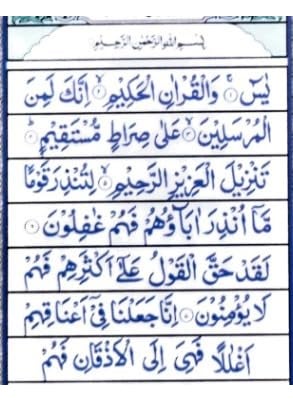 بِسْمِ اللهِ الرَّحْمٰنِ الرَّحِيْمِ
يٰسٓ ۚ﴿۱﴾ وَالْقُرْاٰنِ الْحَكِيْمِ ۙ﴿۲﴾ اِنَّكَ لَمِنَ
الْمُرْسَلِيْنَ ۙ﴿۳﴾ عَلٰى صِرَاطٍ مُّسْتَقِيْمٍ ؕ﴿۴﴾
تَنْزِيْلَ الْعَزِيْزِ الرَّحِيْمِ ۙ﴿۵﴾ لِتُنْذِرَ قَوْمًا
مَّاۤ اُنْذِرَ اٰبَآؤُهُمْ فَهُمْ غٰفِلُوْنَ ﴿۶﴾
لَقَدْ حَقَّ الْقَوْلُ عَلٰۤى اَكْثَرِهِمْ فَهُمْ
لَا يُؤْمِنُوْنَ ﴿۷﴾ اِنَّا جَعَلْنَا فِيْۤ اَعْنَاقِهِمْ
اَغْلٰلًا فَهِيَ اِلَى الْاَذْقَانِ فَهُمْ